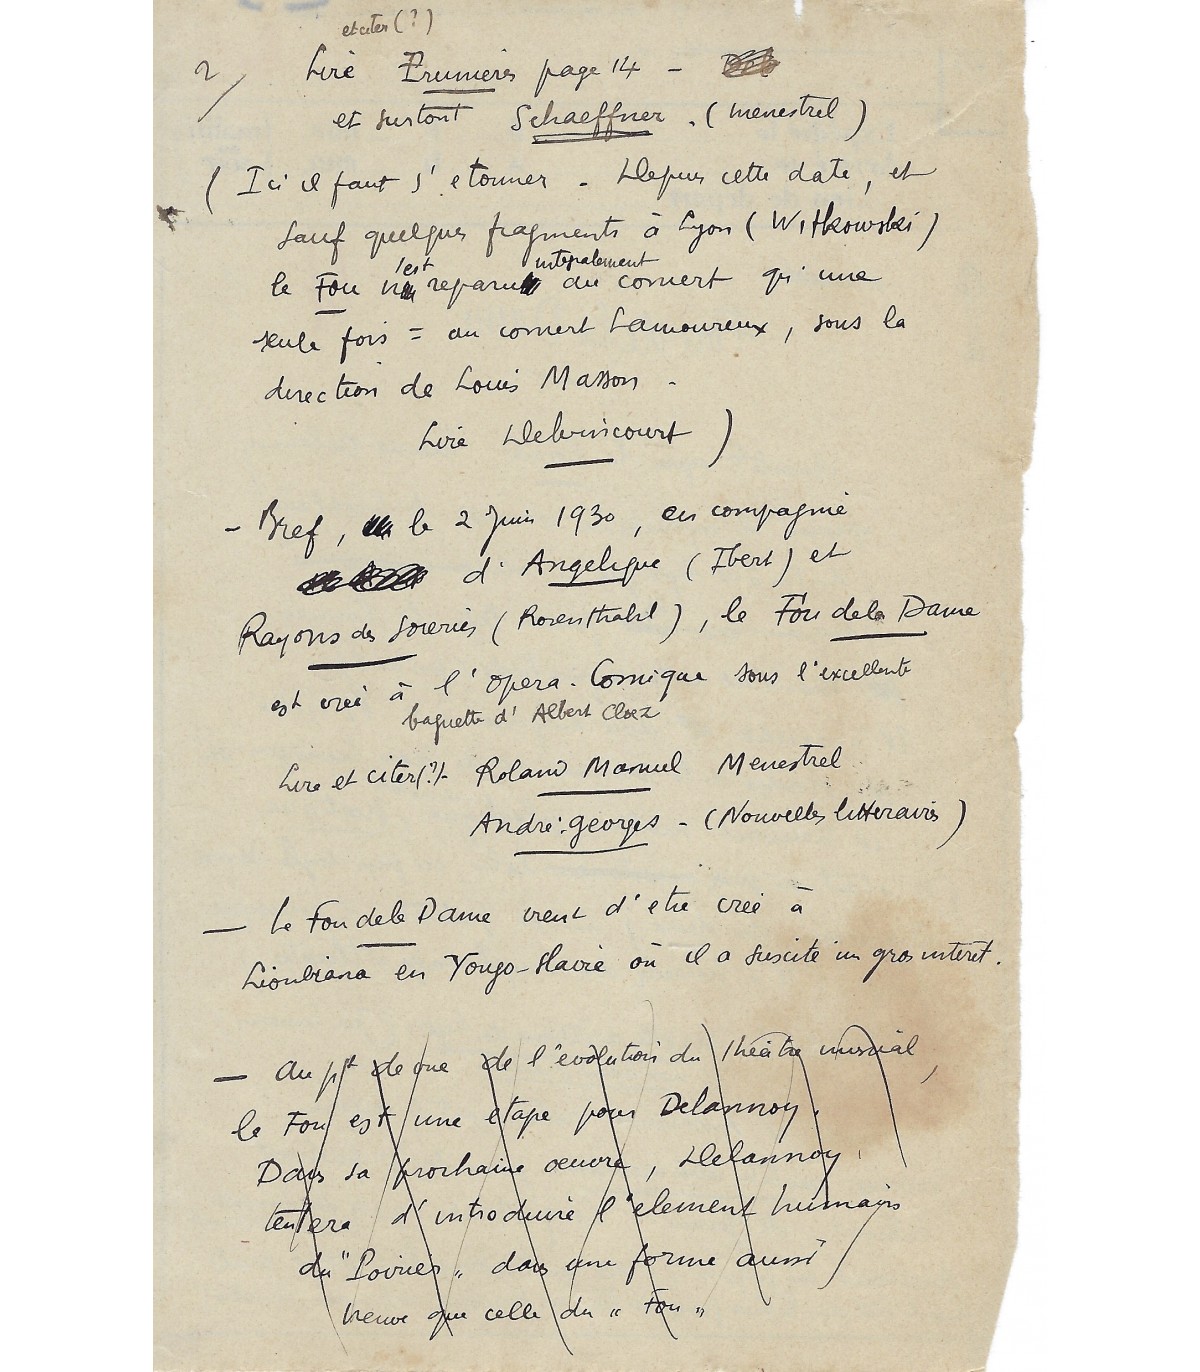 et citer (?)
2/ Lire Prunières page 14 -
et surtout Schaeffner. (Menestrel)
( Ici il faut s'etonner - Depuis cette date, et
sauf quelques fragments à Lyon (Witkowski)
le Fou n'est reparu intégralement au concert qu'une
seule fois = au concert Lamoureux, sous la
direction de Louis Masson -
Lire Delvincourt )
- Bref, le 2 Juin 1930, en compagnie
d'Angelique (Ibert) et
Rayons des Soieries (Rosenthal), le Fou de la Dame
est créé à l'Opera-Comique sous l'excellente
baguette d'Albert Cloez
Lire et citer (?) Roland Manuel Menestrel
André-georges - (Nouvelles litteraires)
— Le Fou de la Dame vient d'etre créé à
Lioubiana en Yougo-slavie où il a suscité un gros intérêt.
— Au pt de vue de l'évolution du théâtre musical,
le Fou est une etape pour Delannoy.
Dans sa prochaine œuvre, Delannoy
tentera d'introduire l'element humain
du "Poirier" dans une forme aussi
neuve que celle du "Fou"